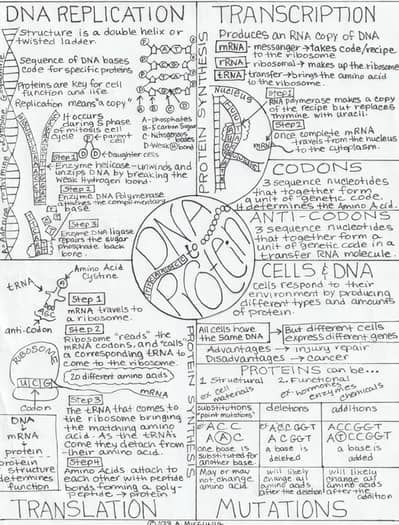 DNA REPLICATION
Structure is a double helix or
twisted ladder.
Sequence of DNA bases
code for specific proteins
Proteins are key for cell
function and life.
Replication means "a copy"
It occurs
during S phase
of mitosis cell
cycle
parent
cell
daughter cells
A-phosphates
B-5 carbon sugar
C-Nitrogenous
bases
D-Weak H bond
Step 1
Enzyme helicase-unwinds and
unzips DNA by breaking the
weak Hydrogen bond.
Step 2
Enzyme DNA Polymerase
attaches the complimentary
base
Step 3
Enzyme DNA ligase
repairs the sugar
phosphate back
bone.
PROTEIN SYNTHESIS
TRANSCRIPTION
Produces an RNA copy of DNA
mRNA messanger→takes code/recipe
to the ribosome.
rRNA ribosomal→makes up the ribosome
tRNA transfer→brings the amino acid
to the ribosome.
Nucleus
Step 1
RNA polymerase makes a copy
of the recipe but replaces
Thymine with uracil.
Step 2
Once complete mRNA
travels from the nucleus
to the cytoplasm.
CODONS
3 sequence nucleotides
that together form
a unit of "genetic code"
determines the Amino Acid.
ANTI-CODONS
3 sequence nucleotides
that together form a
unit of genetic code in a
transfer RNA molecule.
DNA
to
Protein
CELLS & DNA
cells respond to their
environment by producing
different types and amounts
of protein.
All cells have
the same DNA
But different cells
express different genes
Advantages → injury repair
Disadvantages → cancer
PROTEINS can be...
1 Structural
ex cell
materials
2. Functional
ex hormones
enzymes
chemicals
substitutions
"point mutations"
deletions
additions
ACC
AAC
one base is
substituted for
another base.
May or may
not change
amino acid.
ACCGGT
ACGGT
a base is
deleted
will likely
change all
amino acids
after the deletion
ACCGGT
ATCCGGT
a base is
added
will likely
change all
amino acids
after the
addition
MUTATIONS
Amino Acid
Cystine
tRNA
anti-codon
RIBOSOME
UCG
Codon
mRNA
20 different amino acids
Step 1
mRNA travels to
a ribosome.
Step 2
Ribosome "reads" the
mRNA codons, and "calls"
a corresponding tRNA to
come to the ribosome.
Step 3
The tRNA that comes to
the ribosome bringing
the matching amino
acid. As the tRNAs
come they detach from
their amino acid.
Step 4
Amino Acids attach to
each other with peptide
bonds forming a poly-
peptide → protein
PROTEIN SYNTHESIS
DNA
mRNA
protein
protein
structure
determines
function
TRANSLATION